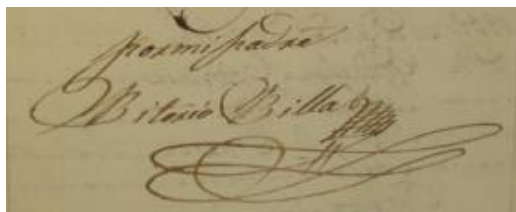 por mi padre
Bitorio Billa